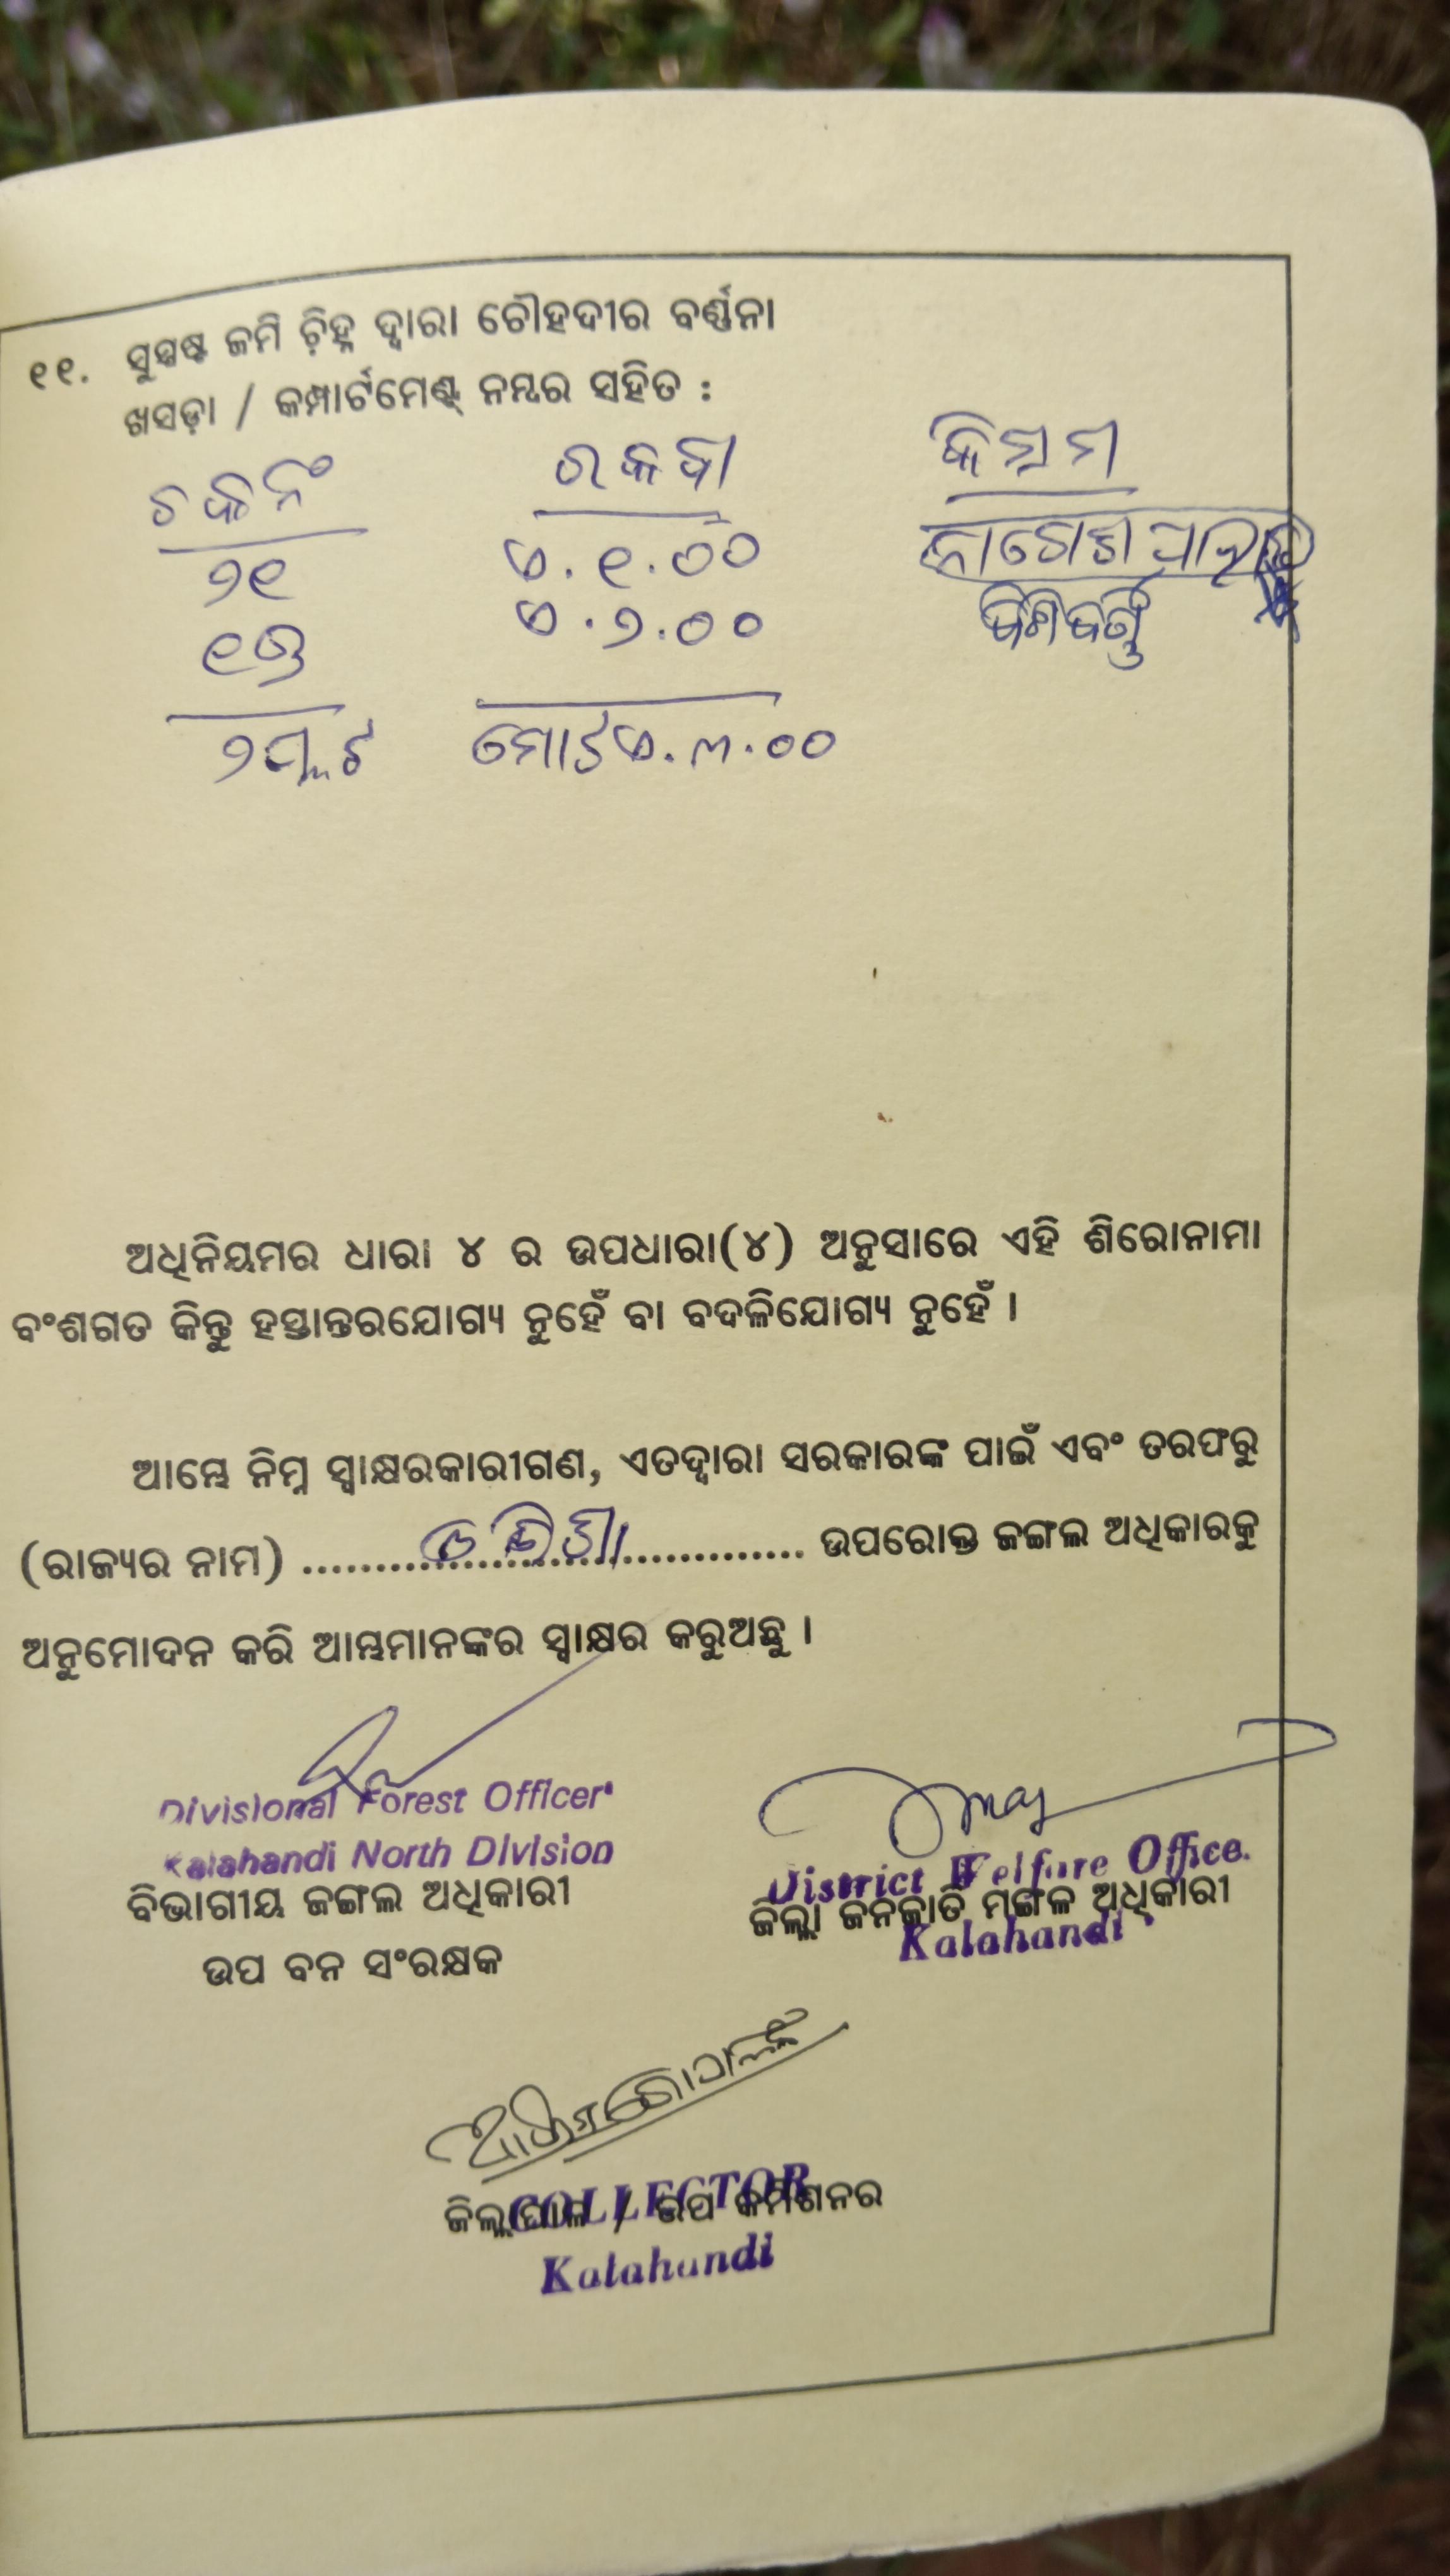 ୧୧. ସୁସ୍ପଷ୍ଟ ଜମି ଚିହ୍ନ ଦ୍ୱାରା ଚୌହଦୀର ବର୍ଣ୍ଣନା
ଖସଡ଼ା / କମ୍ପାର୍ଟମେଣ୍ଟ୍ ନମ୍ବର ସହିତ :
ଚକ ନଂ ରକବା କିସମ
୨୧ ଏ.୧.୦୦
୧୬ ଏ.୨.୦୦
୨ ପ୍ଲଟ ମୋଟ ଏ.୩.୦୦
ଅଧିନିୟମର ଧାରା ୪ ର ଉପଧାରା(୪) ଅନୁସାରେ ଏହି ଶିରୋନାମା
ବଂଶଗତ କିନ୍ତୁ ହସ୍ତାନ୍ତରଯୋଗ୍ୟ ନୁହେଁ ବା ବଦଳିଯୋଗ୍ୟ ନୁହେଁ ।
ଆମ୍ଭେ ନିମ୍ନ ସ୍ୱାକ୍ଷରକାରୀଗଣ, ଏତଦ୍ୱାରା ସରକାରଙ୍କ ପାଇଁ ଏବଂ ତରଫରୁ
(ରାଜ୍ୟର ନାମ) ................ଓଡ଼ିଶା................ ଉପରୋକ୍ତ ଜଙ୍ଗଲ ଅଧିକାରକୁ
ଅନୁମୋଦନ କରି ଆମ୍ଭମାନଙ୍କର ସ୍ୱାକ୍ଷର କରୁଅଛୁ ।
Divisional Forest Officer
Kalahandi North Division
ବିଭାଗୀୟ ଜଙ୍ଗଲ ଅଧିକାରୀ
ଉପ ବନ ସଂରକ୍ଷକ
District Welfare Office.
ଜିଲ୍ଲା ଜନଜାତି ମଙ୍ଗଳ ଅଧିକାରୀ
Kalahandi
COLLECTOR
ଜିଲ୍ଲାପାଳ / ଉପ କମିଶନର
Kalahandi